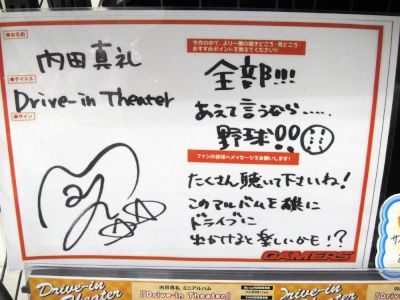 ●お名前
内田真礼
●タイトル
Drive-in Theater
●サイン
今作の中で、より一層の聴きどころ・見どころ・
おすすめポイントを教えてください!
全部!!!
あえて言うなら.....
野球!!
ファンの皆様へメッセージをお願いします!
たくさん聴いて下さいね!
このアルバムを機に
ドライブに
出かけると楽しいかも!?
GAMERS
Drive-in
Theater
内田真礼 ミニアルバム
『Drive-in Theater』
Drive-in
Theater